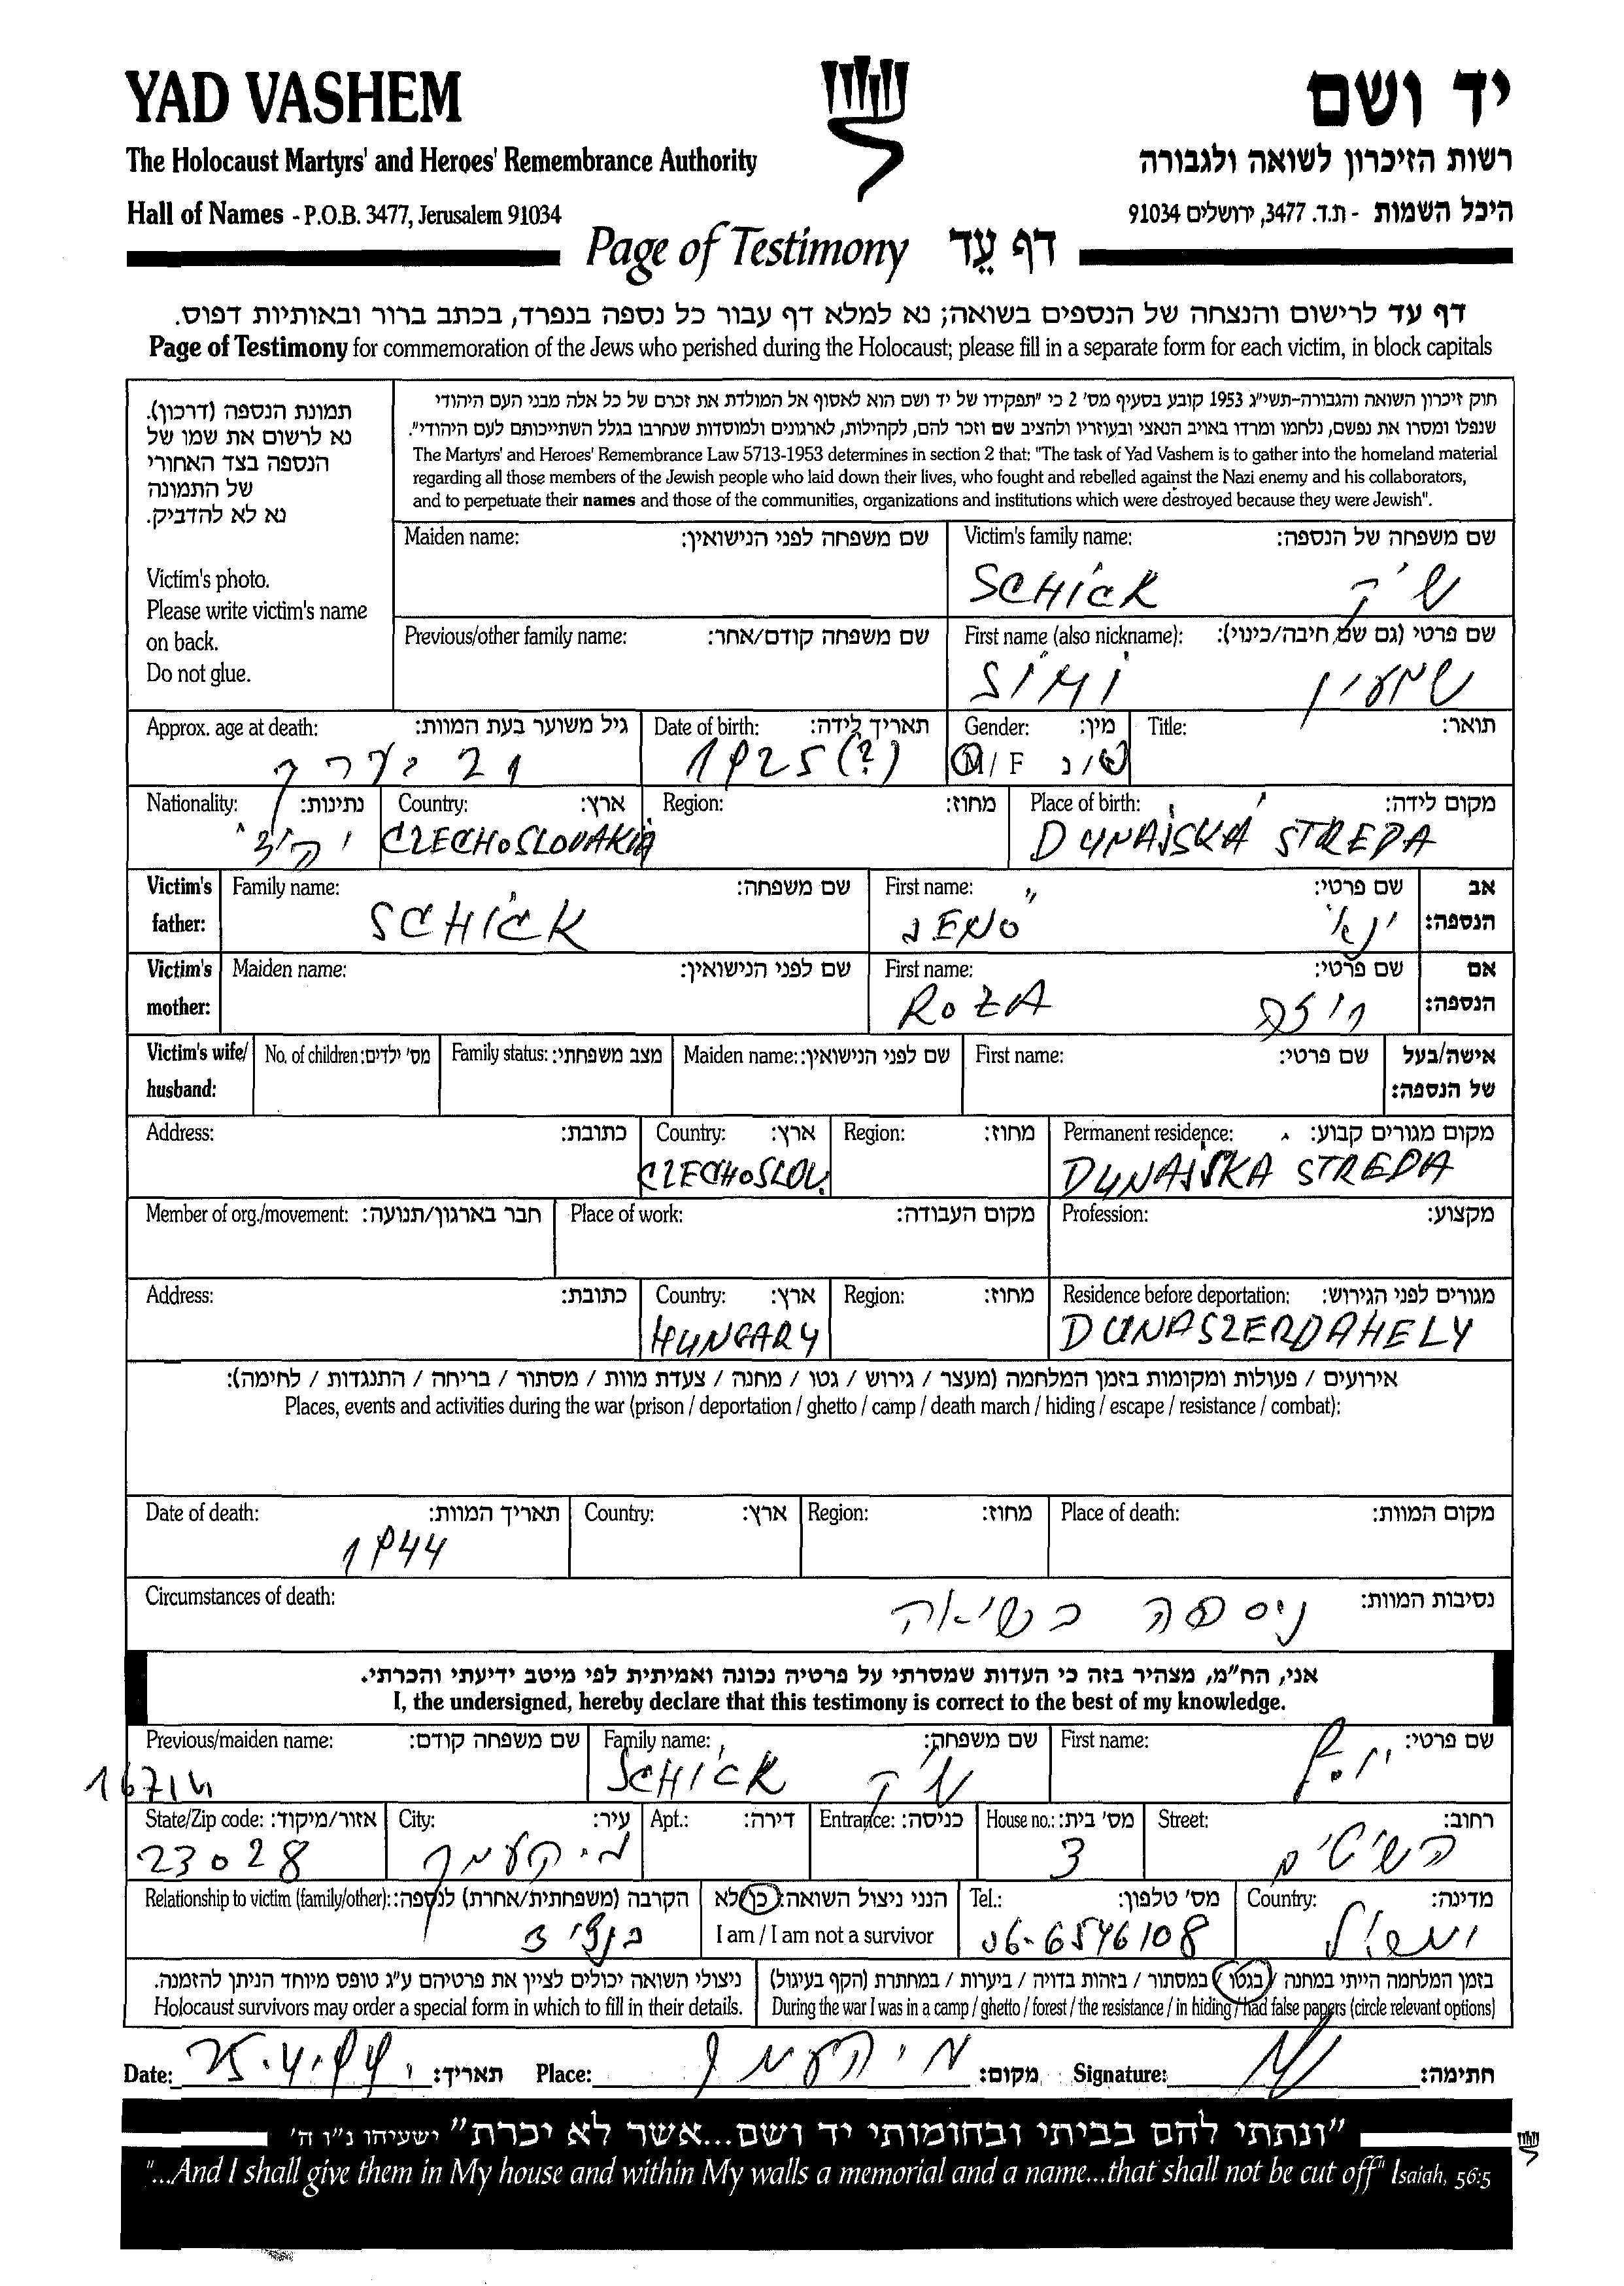 YAD VASHEM
יד ושם
The Holocaust Martyrs' and Heroes' Remembrance Authority
רשות הזיכרון לשואה ולגבורה
Hall of Names - P.O.B. 3477, Jerusalem 91034
היכל השמות - ת.ד. 3477, ירושלים 91034
Page of Testimony דף עֵד
דף עד לרישום והנצחה של הנספים בשואה; נא למלא דף עבור כל נספה בנפרד, בכתב ברור ובאותיות דפוס.
Page of Testimony for commemoration of the Jews who perished during the Holocaust; please fill in a separate form for each victim, in block capitals
תמונת הנספה (דרכון).
נא לרשום את שמו של
הנספה בצד האחורי
של התמונה
נא לא להדביק.
Victim's photo.
Please write victim's name
on back.
Do not glue.
חוק זיכרון השואה והגבורה-תשי"ג 1953 קובע בסעיף מס' 2 כי "תפקידו של יד ושם הוא לאסוף אל המולדת את זכרם של כל אלה מבני העם היהודי
שנפלו ומסרו את נפשם, נלחמו ומרדו באויב הנאצי ובעוזריו ולהציב שם וזכר להם, לקהילות, לארגונים ולמוסדות שנחרבו בגלל השתייכותם לעם היהודי".
The Martyrs' and Heroes' Remembrance Law 5713-1953 determines in section 2 that: "The task of Yad Vashem is to gather into the homeland material
regarding all those members of the Jewish people who laid down their lives, who fought and rebelled against the Nazi enemy and his collaborators,
and to perpetuate their names and those of the communities, organizations and institutions which were destroyed because they were Jewish".
Maiden name: שם משפחה לפני הנישואין: Victim's family name: שם משפחה של הנספה:
SCHICK שיק
Previous/other family name: שם משפחה קודם/אחר: First name (also nickname): שם פרטי (גם שם חיבה/כינוי):
SIMI שמעון
Approx. age at death: גיל משוער בעת המוות: Date of birth: תאריך לידה: Gender: מין: Title: תואר:
21 בערך 1925(?) M / F ז/נ
Nationality: נתינות: Country: ארץ: Region: מחוז: Place of birth: מקום לידה:
CZECHOSLOVAKIA DUNAJSKÁ STREDA
Victim's father: Family name: שם משפחה: First name: שם פרטי: אב הנספה:
SCHICK JENŐ
Victim's mother: Maiden name: שם לפני הנישואין: First name: שם פרטי: אם הנספה:
ROZA רוזה
Victim's wife/ husband: No. of children: מס' ילדים: Family status: מצב משפחתי: Maiden name: שם לפני הנישואין: First name: שם פרטי: אישה/בעל של הנספה:
Address: כתובת: Country: ארץ: Region: מחוז: Permanent residence: מקום מגורים קבוע:
CZECHOSLOV. DUNAJSKA STREDA
Member of org./movement: חבר בארגון/תנועה: Place of work: מקום העבודה: Profession: מקצוע:
Address: כתובת: Country: ארץ: Region: מחוז: Residence before deportation: מגורים לפני הגירוש:
HUNGARY DUNASZERDAHELY
אירועים / פעולות ומקומות בזמן המלחמה (מעצר / גירוש / גטו / מחנה / צעדת מוות / מסתור / בריחה / התנגדות / לחימה):
Places, events and activities during the war (prison / deportation / ghetto / camp / death march / hiding / escape / resistance / combat):
Date of death: תאריך המוות: Country: ארץ: Region: מחוז: Place of death: מקום המוות:
1944
Circumstances of death: נסיבות המוות:
ניספה בשואה
אני, הח"מ, מצהיר בזה כי העדות שמסרתי על פרטיה נכונה ואמיתית לפי מיטב ידיעתי והכרתי.
I, the undersigned, hereby declare that this testimony is correct to the best of my knowledge.
Previous/maiden name: שם משפחה קודם: Family name: שם משפחה: First name: שם פרטי:
SCHICK שיק
State/Zip code: אזור/מיקוד: City: עיר: Apt.: דירה: Entrance: כניסה: House no.: מס' בית: Street: רחוב:
23028 3 השיטים
Relationship to victim (family/other): הקרבה (משפחתית/אחרת) לנספה: הנני ניצול השואה: כן/לא Tel.: מס' טלפון: Country: מדינה:
I am / I am not a survivor
06-6546108 ישראל
ניצולי השואה יכולים לציין את פרטיהם ע"ג טופס מיוחד הניתן להזמנה.
Holocaust survivors may order a special form in which to fill in their details.
בזמן המלחמה הייתי במחנה / בגטו / במסתור / בזהות בדויה / ביערות / במחתרת (הקף בעיגול)
During the war I was in a camp / ghetto / forest / the resistance / in hiding / had false papers (circle relevant options)
Date: 25.4.99 תאריך: Place: מקום: Signature: חתימה:
"ונתתי להם בביתי ובחומותי יד ושם...אשר לא יכרת" ישעיהו נ"ו ה'
"...And I shall give them in My house and within My walls a memorial and a name...that shall not be cut off" Isaiah, 56:5